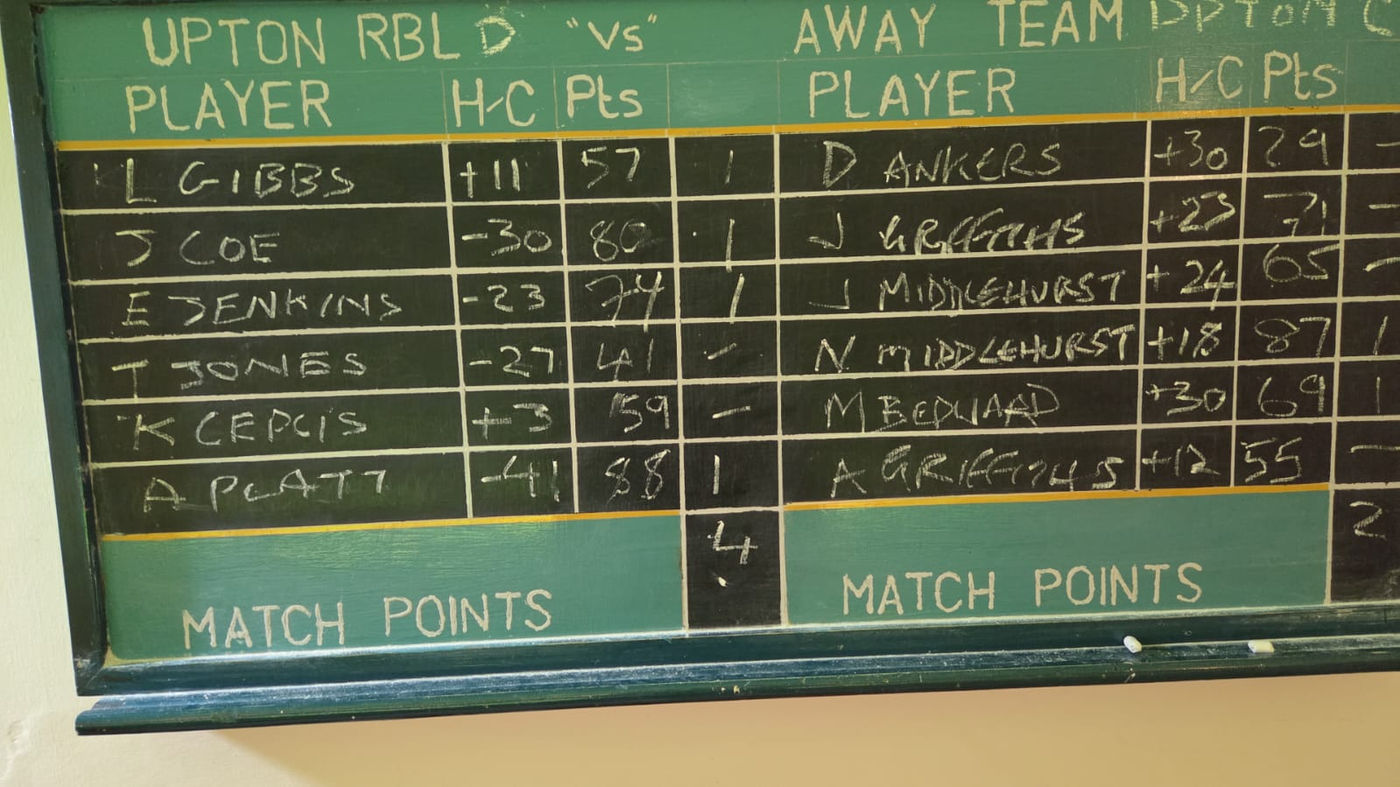 UPTON RBL D "Vs" AWAY TEAM UPTON C
PLAYER H/C Pts PLAYER H/C Pts
L GIBBS +11 57 1 D ANKERS +30 29 -
J COE -30 80 1 J GRIFFITHS +23 71 -
E JENKINS -23 74 1 J MIDDLEHURST +24 65 -
T JONES -27 41 - N MIDDLEHURST +18 87 1
K +3 59 - M +30 69 1
A PLATT -41 88 1 A GRIFFITHS +12 55 -
4 2
MATCH POINTS MATCH POINTS